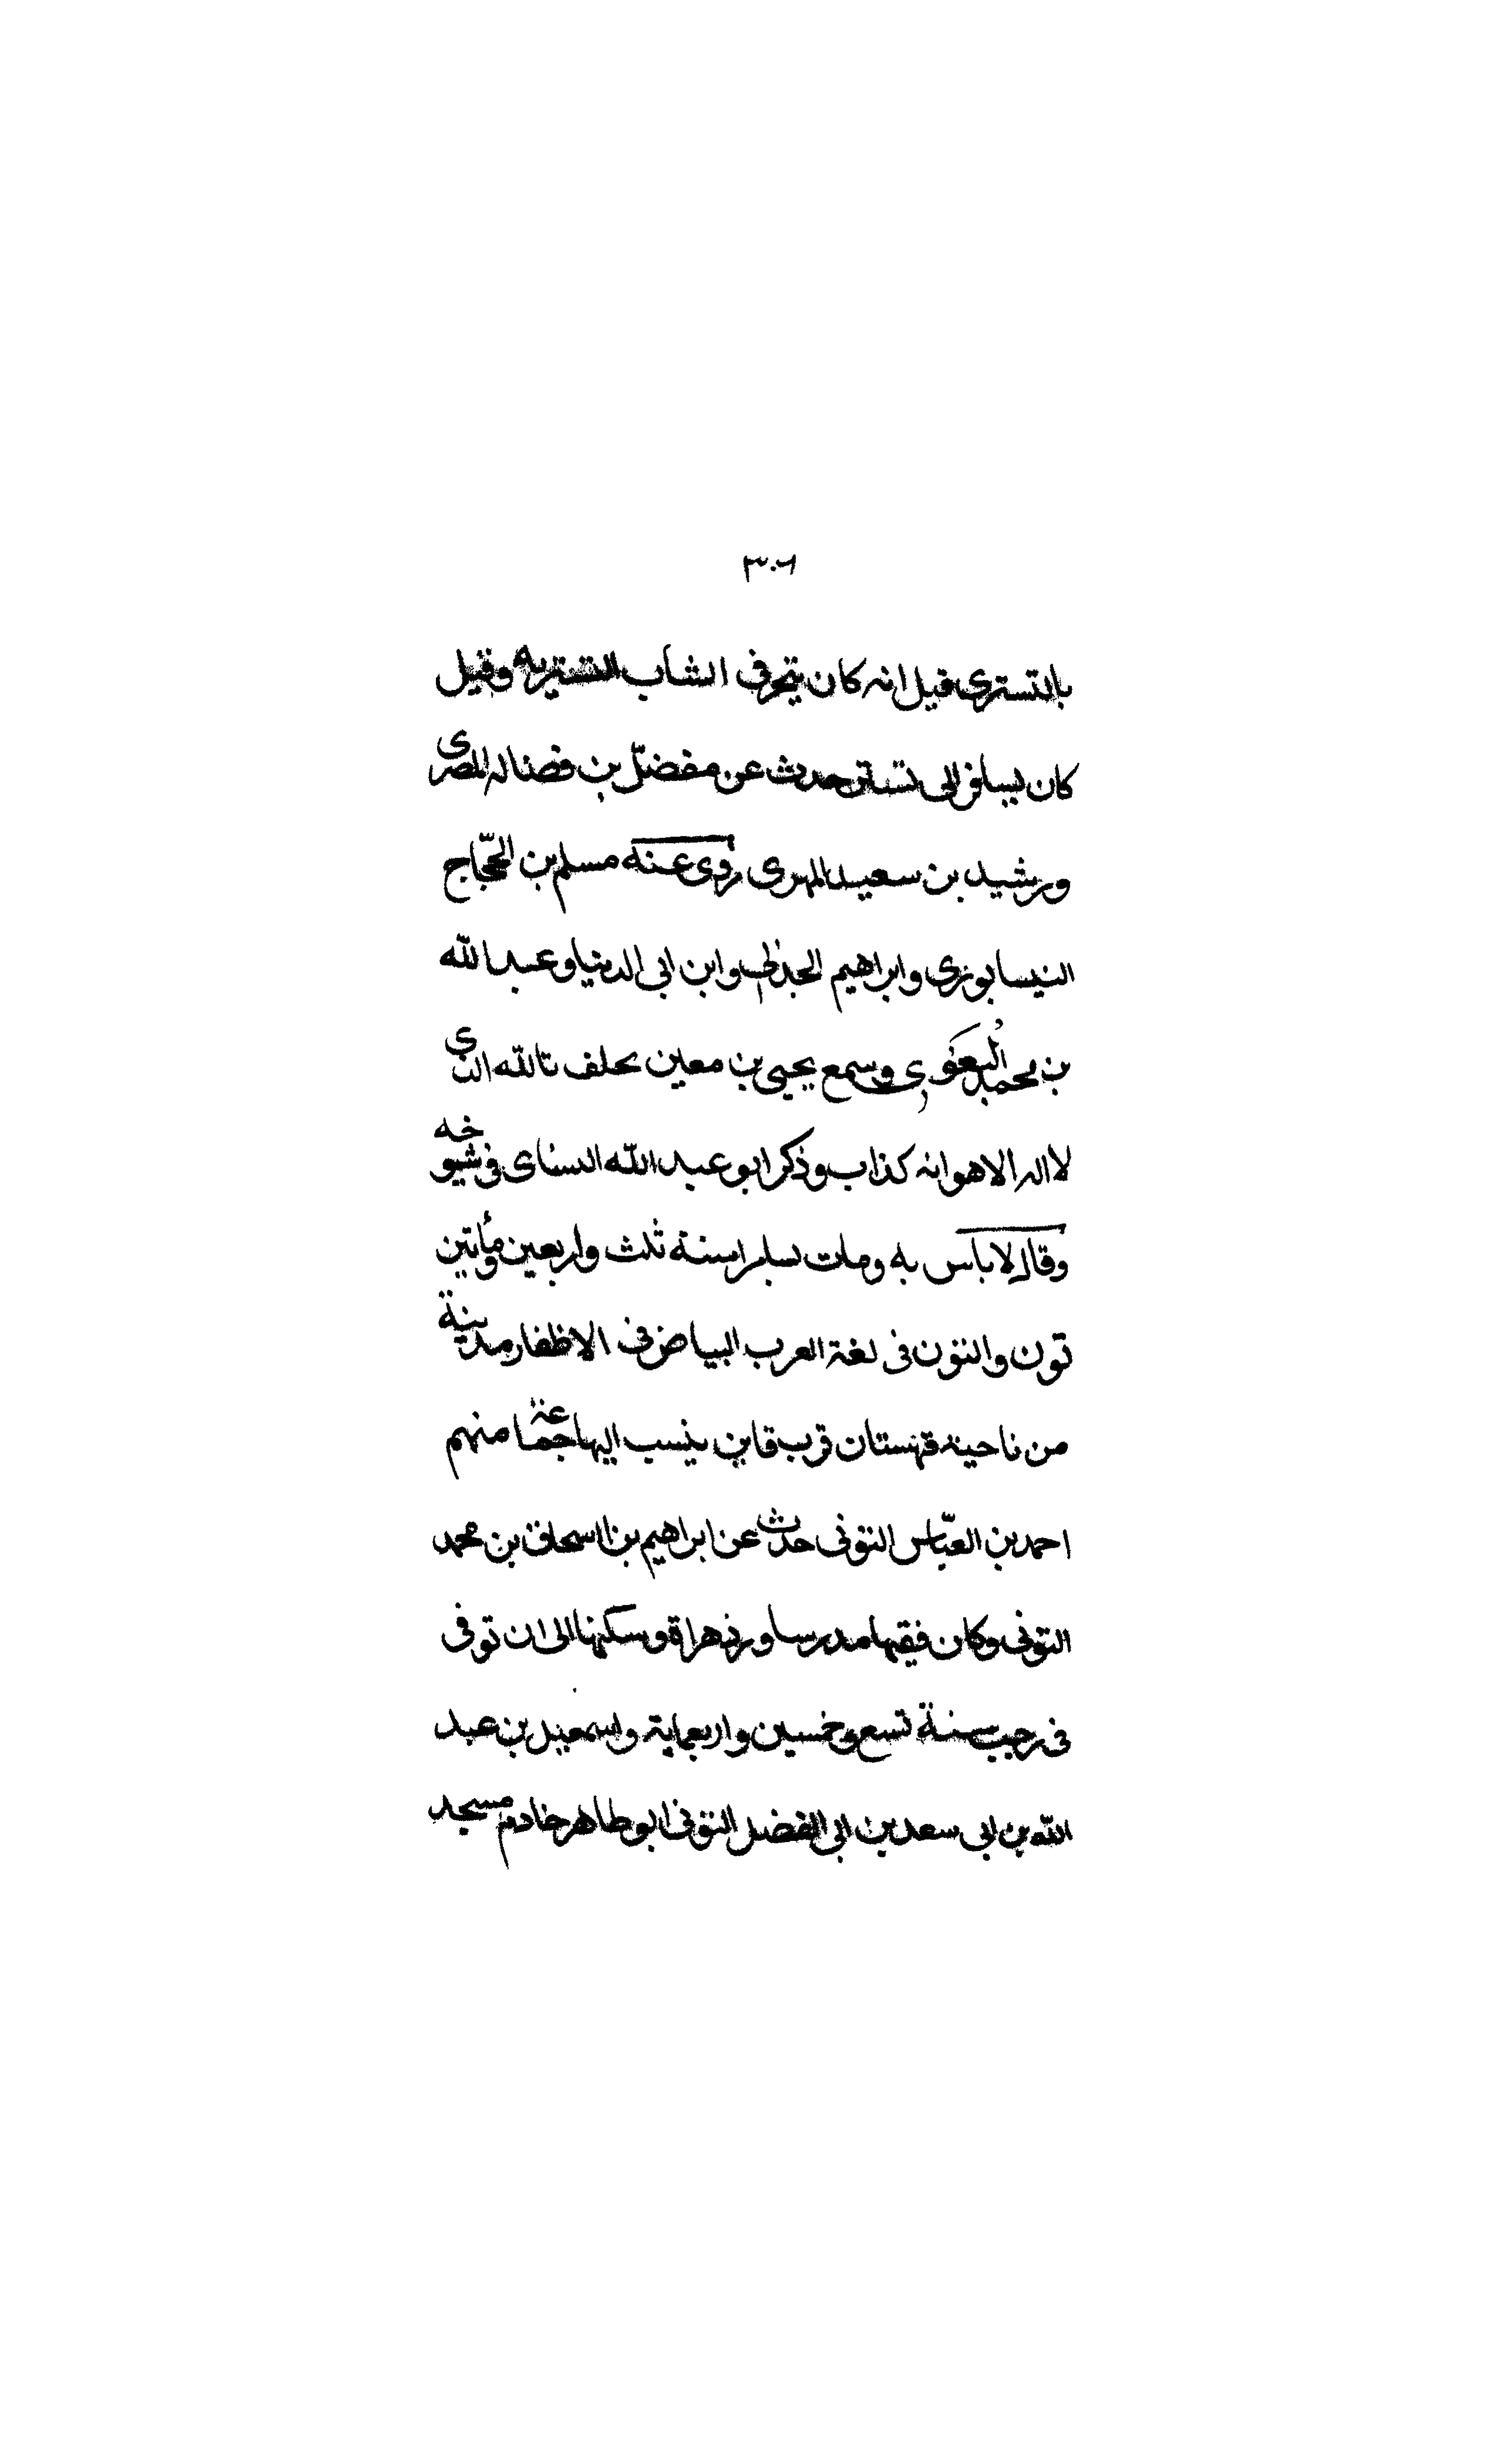 ٣٠٦
بالتستري قيل انه كان يتجر في الثياب التستريه وقيل
كان يسافر الى تستر حدث عن مفضّل بن فضاله المصرى
ورشيد بن سعيد المهرى روى عنه مسلم بن الحجّاج
النيسابورى وابراهيم الحبذلي وابن ابى الدنيا وعبد الله
بن محمد البغوى وسمع يحيى بن معين يحلف بالله الذى
لا اله الا هو انه كذاب وذكر ابو عبد الله النساى في شيوخه
وقال لا باس به ومات بسامرا سنة ثلث واربعين ومأيتين
تون والتون فى لغة العرب البياض فى الاظفار مدينة
من ناحية قهستان قرب قاين ينسب اليها جماعة منهم
احمد بن العبّاس التونى حدث عن ابراهيم بن اسحاق بن محمد
التونى وكان فقيها مدرسا ورد هراة وسكنها الى ان توفى
فى رجب سنة تسع وخمسين واربعماية واسمعيل بن عبد
الله بن ابى سعد بن ابى الفضل التونى ابو طاهر خادم مسجد